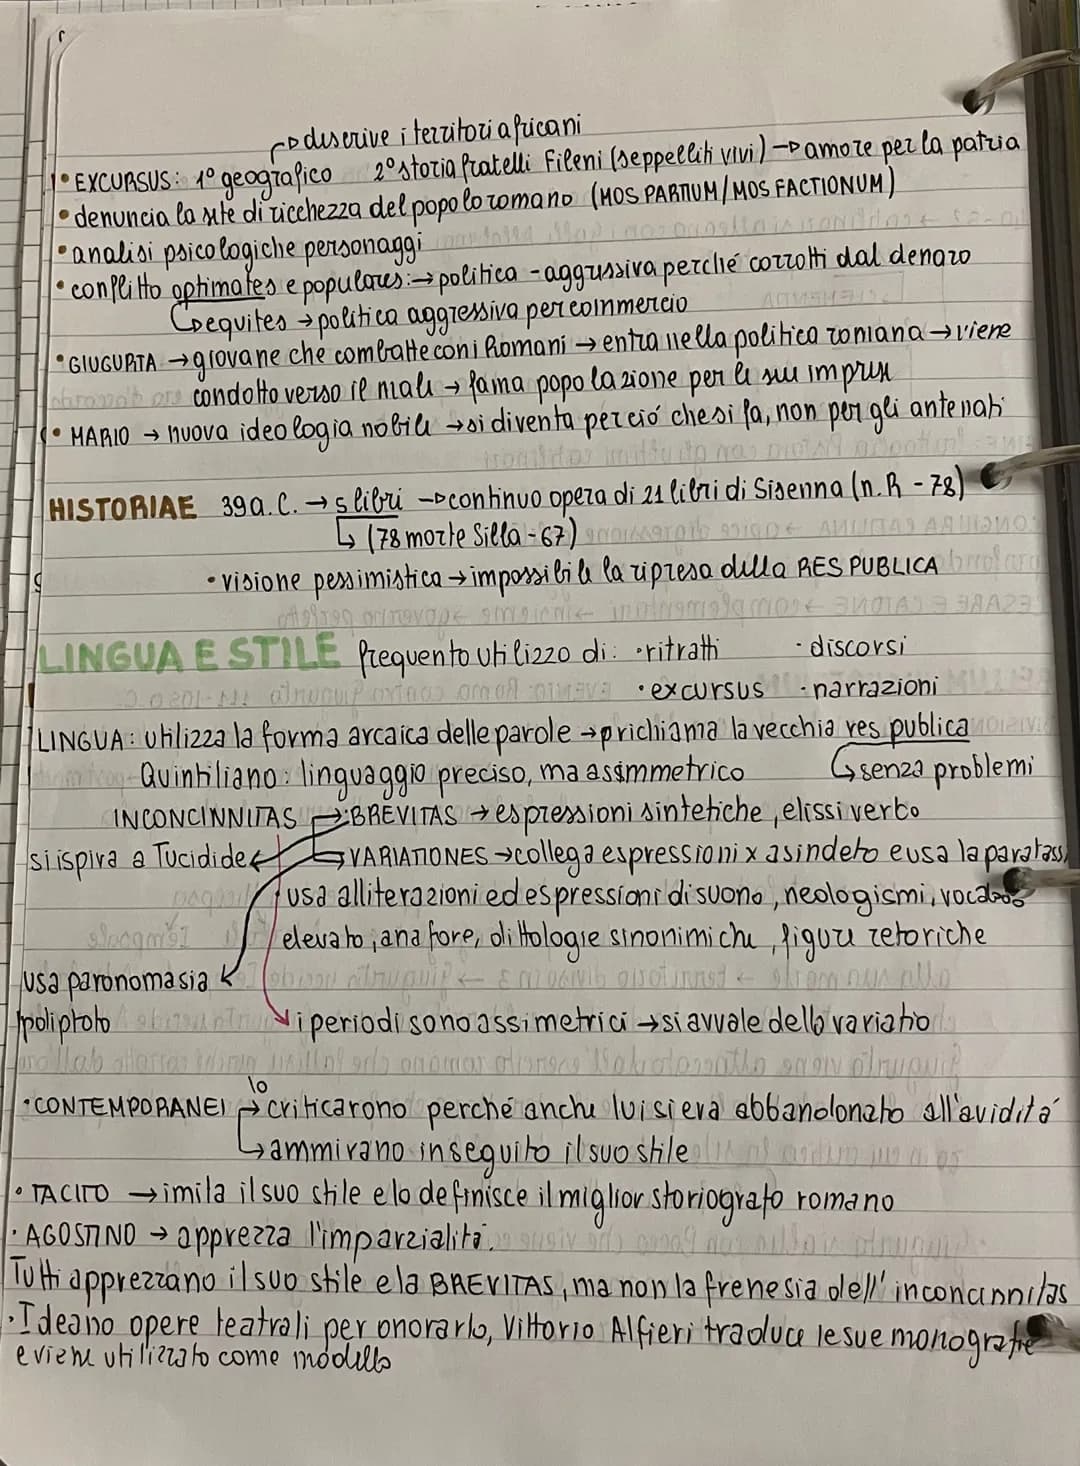 → descrive i territori africani
• EXCURSUS: 1° geografico 2° storia fratelli Fileni (seppelliti vivi) → amore per la patria
• denuncia la sete di ricchezza del popolo romano (MOS PARTIUM/MOS FACTIONUM)
• analisi psicologiche personaggi
• conflitto optimates e populares: → politica - aggressiva perché corrotti dal denaro
↳ equites → politica aggressiva per commercio
• GIUGURTA → giovane che combatte con i Romani → entra nella politica romana → viene
condotto verso il male → fama popolazione per le sue imprese
• MARIO → nuova ideologia nobile → si diventa per ció che si fa, non per gli antenati
HISTORIAE 39 a.C. → 5 libri → continuo opera di 21 libri di Sisenna (n.R - 78)
↳ (78 morte Silla - 67)
• visione pessimistica → impossibile la ripresa della RES PUBLICA
LINGUA E STILE frequento utilizzo di: • ritratti • discorsi
• excursus • narrazioni
LINGUA: utilizza la forma arcaica delle parole → prichiama la vecchia res publica
Quintiliano: linguaggio preciso, ma assimmetrico ↳ senza problemi
INCONCINNITAS → BREVITAS → espressioni sintetiche, elissi verbo
si ispira a Tucidide ← ↳ VARIATIONES → collega espressioni x asindeto e usa la paratassi
usa allitterazioni ed espressioni di suono, neologismi, vocabolo
elevato, anafore, dittologie sinonimiche, figure retoriche
usa paronomasia
poliptoto i periodi sono assimetrici → si avvale dello variatio
lo
• CONTEMPORANEI → criticarono perché anche lui si era abbandonato all'aviditá
↳ ammirano in seguito il suo stile
• TACITO → imita il suo stile e lo definisce il miglior storiografo romano
• AGOSTINO → apprezza l'imparzialitá.
Tutti apprezzano il suo stile e la BREVITAS, ma non la frenesia dell'inconcinnitas
• Ideano opere teatrali per onorarlo, Vittorio Alfieri traduce le sue monografie
e viene utilizzato come modello